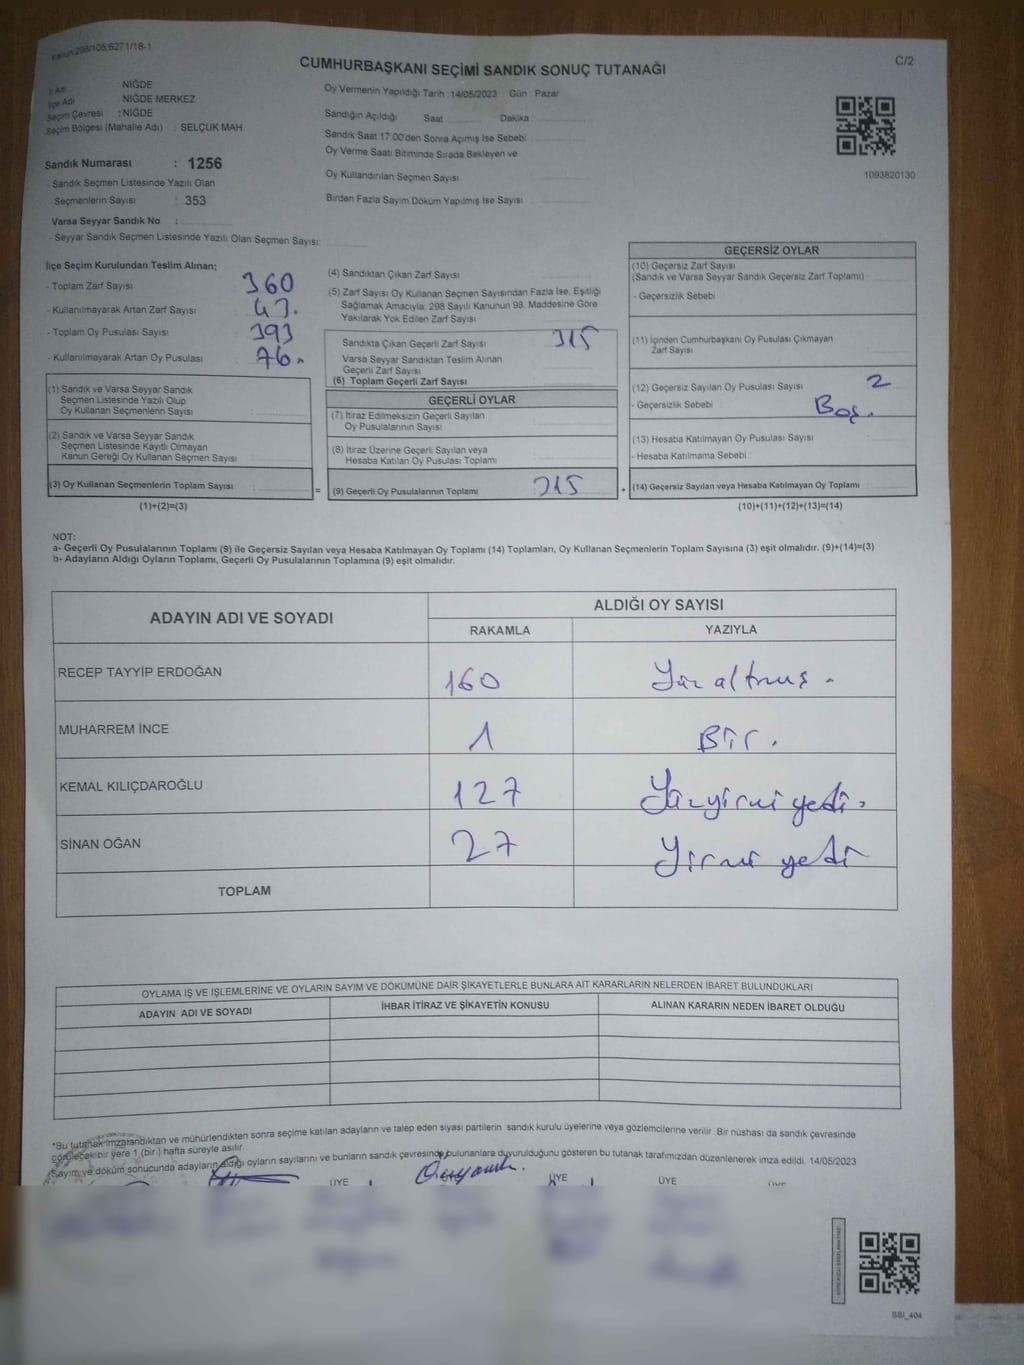 Kanun:298/105;6271/18-1
C/2
CUMHURBAŞKANI SEÇİMİ SANDIK SONUÇ TUTANAĞI
İl Adı : NİĞDE
İlçe Adı : NİĞDE MERKEZ
Seçim Çevresi : NİĞDE
Seçim Bölgesi (Mahalle Adı) : SELÇUK MAH
Sandık Numarası : 1256
- Sandık Seçmen Listesinde Yazılı Olan
Seçmenlerin Sayısı : 353
Varsa Seyyar Sandık No :
- Seyyar Sandık Seçmen Listesinde Yazılı Olan Seçmen Sayısı:
Oy Vermenin Yapıldığı Tarih :14/05/2023 Gün : Pazar
Sandığın Açıldığı Saat Dakika :
Sandık Saat 17:00'den Sonra Açımış İse Sebebi
Oy Verme Saati Bitiminde Sırada Bekleyen ve
Oy Kullandırılan Seçmen Sayısı
Birden Fazla Sayım Döküm Yapılmış İse Sayısı
1093820130
İlçe Seçim Kurulundan Teslim Alınan;
- Toplam Zarf Sayısı 360
- Kullanılmayarak Artan Zarf Sayısı 43.
- Toplam Oy Pusulası Sayısı 393
- Kullanılmayarak Artan Oy Pusulası 76.
(1) Sandık ve Varsa Seyyar Sandık
Seçmen Listesinde Yazılı Olup
Oy Kullanan Seçmenlerin Sayısı
(2) Sandık ve Varsa Seyyar Sandık
Seçmen Listesinde Kayıtlı Olmayan
Kanun Gereği Oy Kullanan Seçmen Sayısı
(3) Oy Kullanan Seçmenlerin Toplam Sayısı
=
(1)+(2)=(3)
(4) Sandıktan Çıkan Zarf Sayısı
(5) Zarf Sayısı Oy Kullanan Seçmen Sayısından Fazla İse, Eşitliği
Sağlamak Amacıyla; 298 Sayılı Kanunun 98. Maddesine Göre
Yakılarak Yok Edilen Zarf Sayısı
Sandıkta Çıkan Geçerli Zarf Sayısı 315
Varsa Seyyar Sandıktan Teslim Alınan
Geçerli Zarf Sayısı
(6) Toplam Geçerli Zarf Sayısı
GEÇERLİ OYLAR
(7) İtiraz Edilmeksizin Geçerli Sayılan
Oy Pusulalarının Sayısı
(8) İtiraz Üzerine Geçerli Sayılan veya
Hesaba Katılan Oy Pusulası Toplamı
(9) Geçerli Oy Pusulalarının Toplamı 315
+
GEÇERSİZ OYLAR
(10) Geçersiz Zarf Sayısı
(Sandık ve Varsa Seyyar Sandık Geçersiz Zarf Toplamı)
- Geçersizlik Sebebi
(11) İçinden Cumhurbaşkanı Oy Pusulası Çıkmayan
Zarf Sayısı
(12) Geçersiz Sayılan Oy Pusulası Sayısı 2
- Geçersizlik Sebebi Boş.
(13) Hesaba Katılmayan Oy Pusulası Sayısı
- Hesaba Katılmama Sebebi
(14) Geçersiz Sayılan veya Hesaba Katılmayan Oy Toplamı
(10)+(11)+(12)+(13)=(14)
NOT:
a- Geçerli Oy Pusulalarının Toplamı (9) ile Geçersiz Sayılan veya Hesaba Katılmayan Oy Toplamı (14) Toplamları, Oy Kullanan Seçmenlerin Toplam Sayısına (3) eşit olmalıdır. (9)+(14)=(3)
b- Adayların Aldığı Oyların Toplamı, Geçerli Oy Pusulalarının Toplamına (9) eşit olmalıdır.
ADAYIN ADI VE SOYADI ALDIĞI OY SAYISI
RAKAMLA YAZIYLA
RECEP TAYYİP ERDOĞAN 160 Yüz altmış.
MUHARREM İNCE 1 Bir.
KEMAL KILIÇDAROĞLU 127 Yüzyirmi yedi.
SİNAN OĞAN 27 Yirmi yedi
TOPLAM
OYLAMA İŞ VE İŞLEMLERİNE VE OYLARIN SAYIM VE DÖKÜMÜNE DAİR ŞİKAYETLERLE BUNLARA AİT KARARLARIN NELERDEN İBARET BULUNDUKLARI
ADAYIN ADI VE SOYADI İHBAR İTİRAZ VE ŞİKAYETİN KONUSU ALINAN KARARIN NEDEN İBARET OLDUĞU
*Bu tutanak imzalandıktan ve mühürlendikten sonra seçime katılan adayların ve talep eden siyasi partilerin sandık kurulu üyelerine veya gözlemcilerine verilir. Bir nüshası da sandık çevresinde
görülecek bir yere 1 (bir) hafta süreyle asılır.
Sayım ve döküm sonucunda adayların aldığı oyların sayılarını ve bunların sandık çevresinde bulunanlara duyurulduğunu gösteren bu tutanak tarafımızdan düzenlenerek imza edildi. 14/05/2023
ÜYE ÜYE ÜYE ÜYE
BBI_404